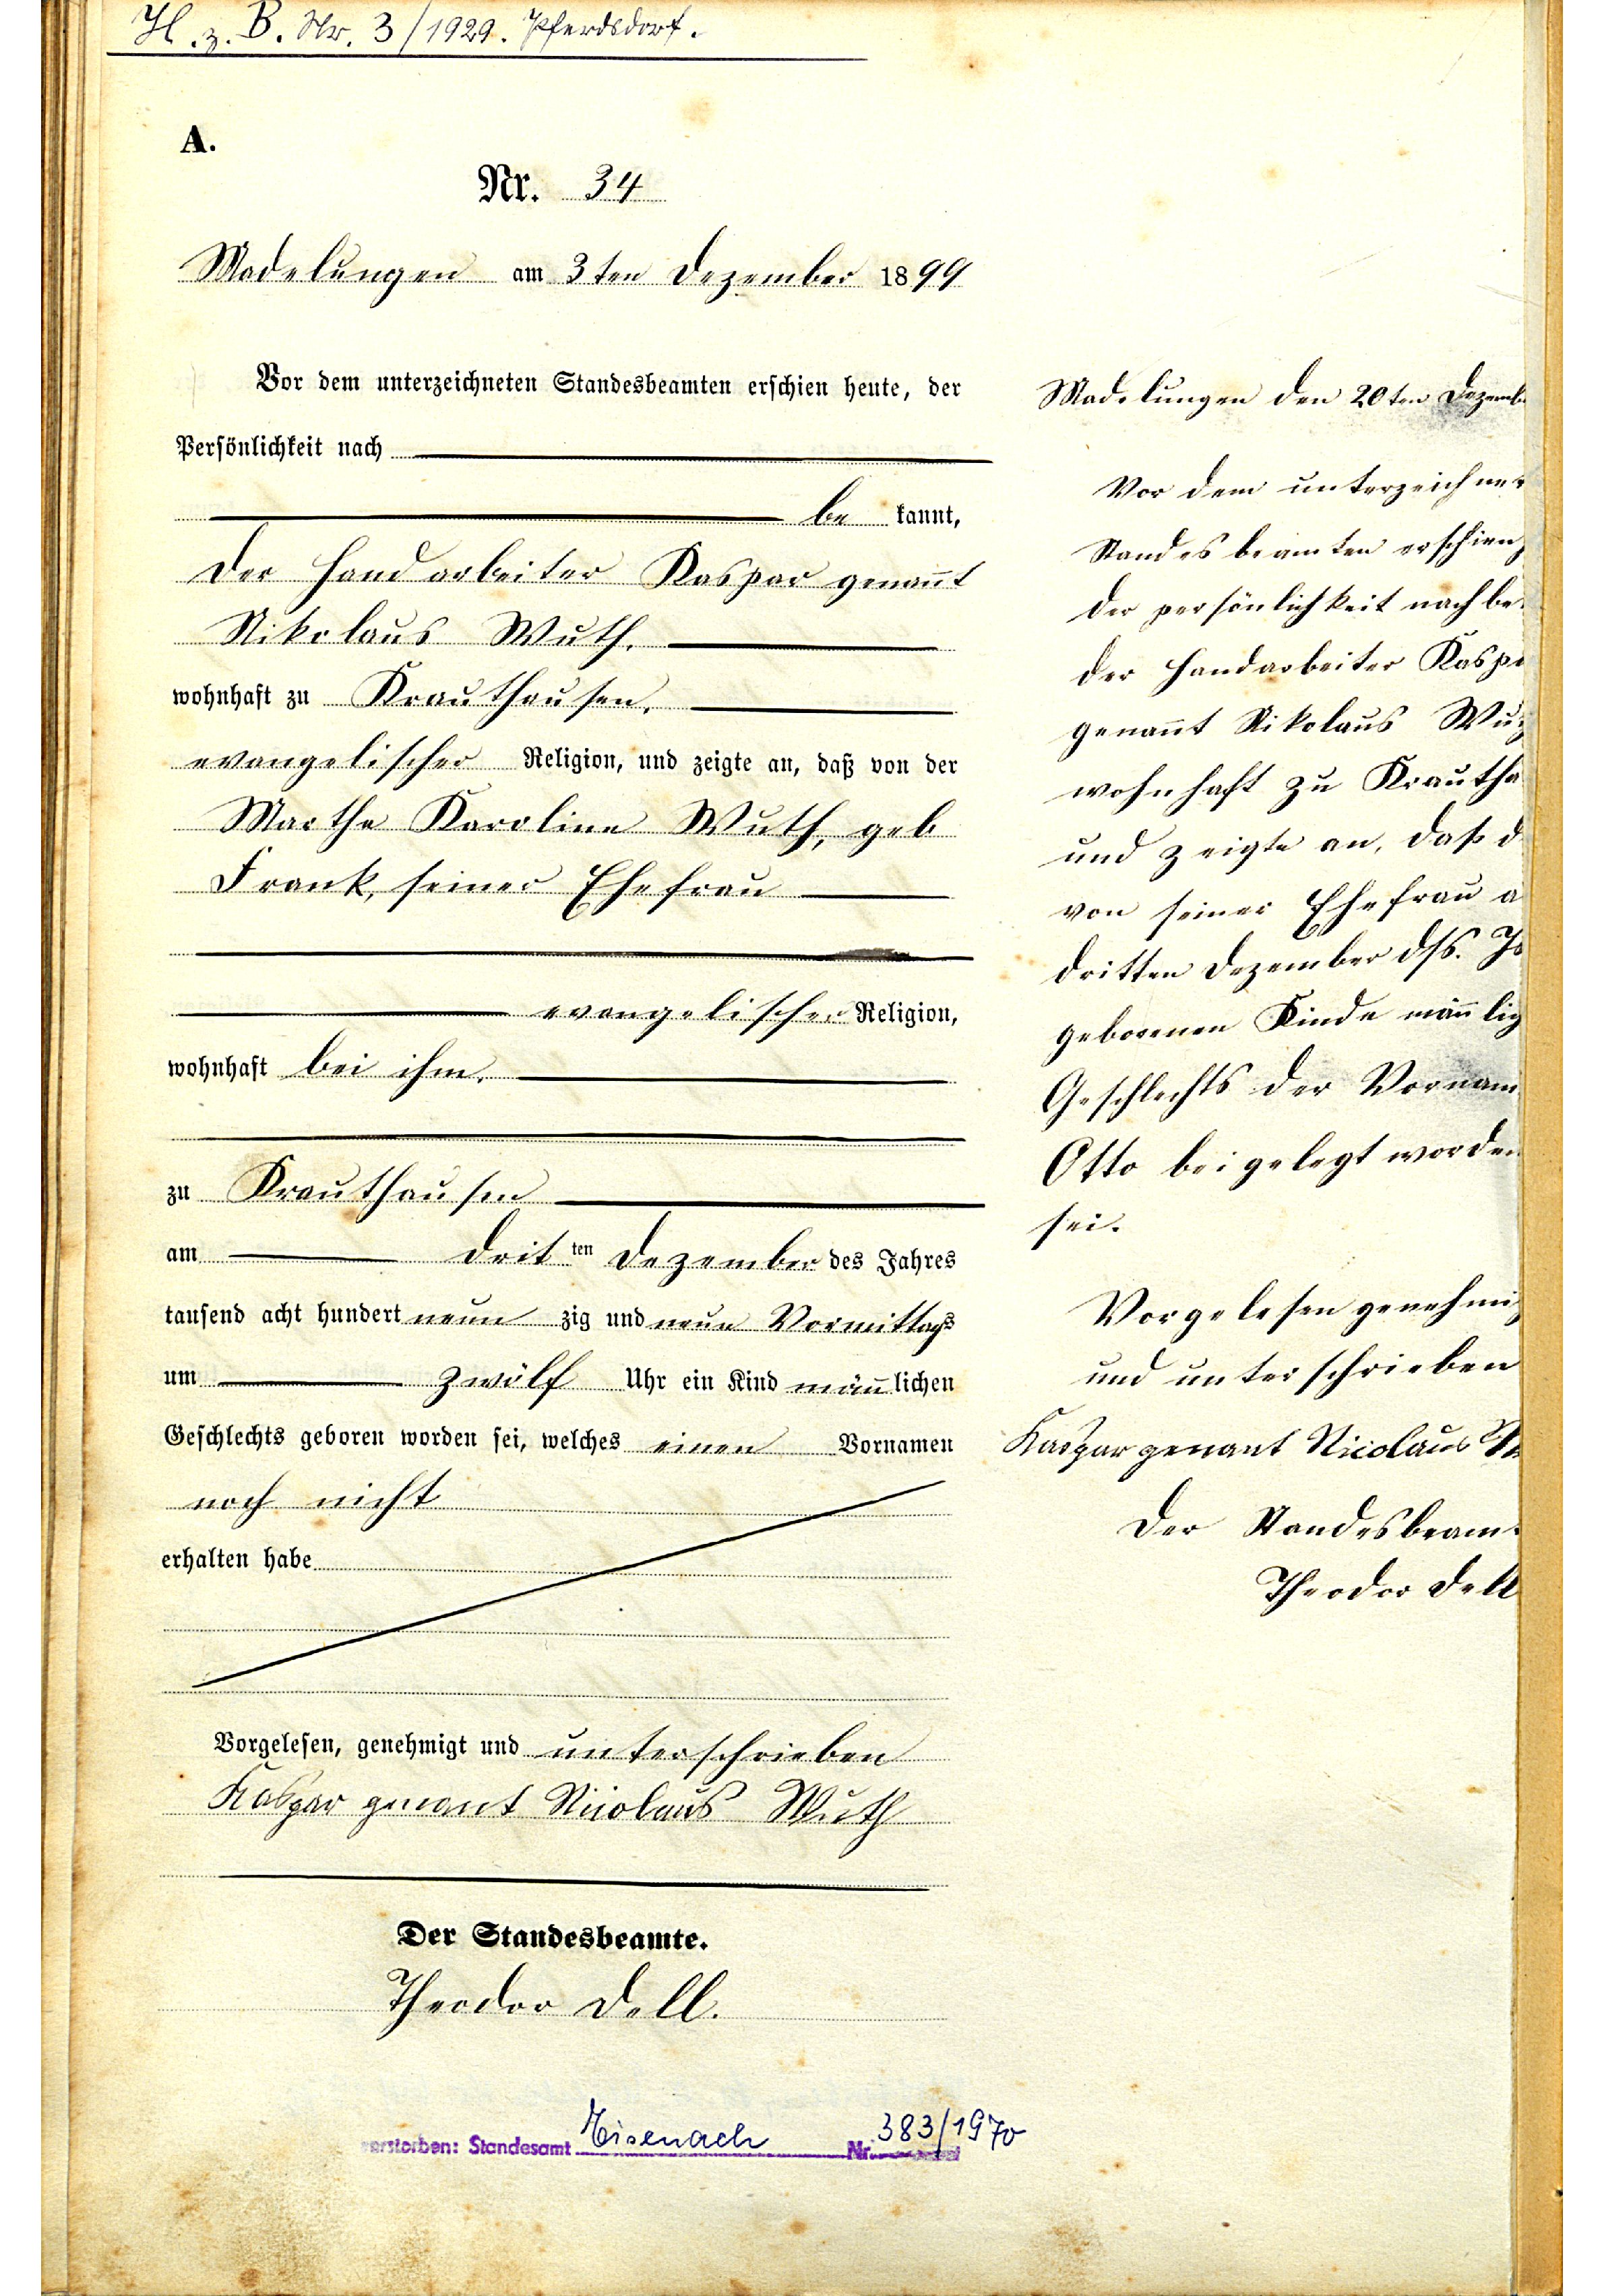 H. z. B. Nr. 3/1929. Pferdsdorf.
A.
Nr. 34
Madelungen am 3ten Dezember 1899
Vor dem unterzeichneten Standesbeamten erschien heute, der
Persönlichkeit nach
be kannt,
der Handarbeiter Kaspar genan̄t
Nikolaus Wuth,
wohnhaft zu Krauthausen,
evangelischer Religion, und zeigte an, daß von der
Marthe Karoline Wuth, geb
Frank, seiner Ehefrau
evangelischer Religion,
wohnhaft bei ihm,
zu Krauthausen
am dritten Dezember des Jahres
tausend acht hundert neun zig und neun Vormittags
um zwölf Uhr ein Kind män̄lichen
Geschlechts geboren worden sei, welches einen Vornamen
noch nicht
erhalten habe
Vorgelesen, genehmigt und unterschrieben
Kaspar genant Nicolaus Wuth
Der Standesbeamte.
Theodor Dell.
verstorben: Standesamt Eisenach Nr. 383/1970
Madelungen den 20ten Dezembe
Vor dem unterzeichnet
Standesbeamten erschien,
der persönlichkeit nach be
der Handarbeiter Kaspa
genan̄t Nikolaus Wu
wohnhaft zu Krautha
und zeigte an, daß d
von seiner Ehefrau a
dritten Dezember dss. Js
geborenen Kinde män̄lic
Geschlechts der Vornam
Otto beigelegt worden
sei.
Vorgelesen genehmig
und unterschrieben
Kaspar genant Nicolaus W
Der Standesbeam
Theodor Dell